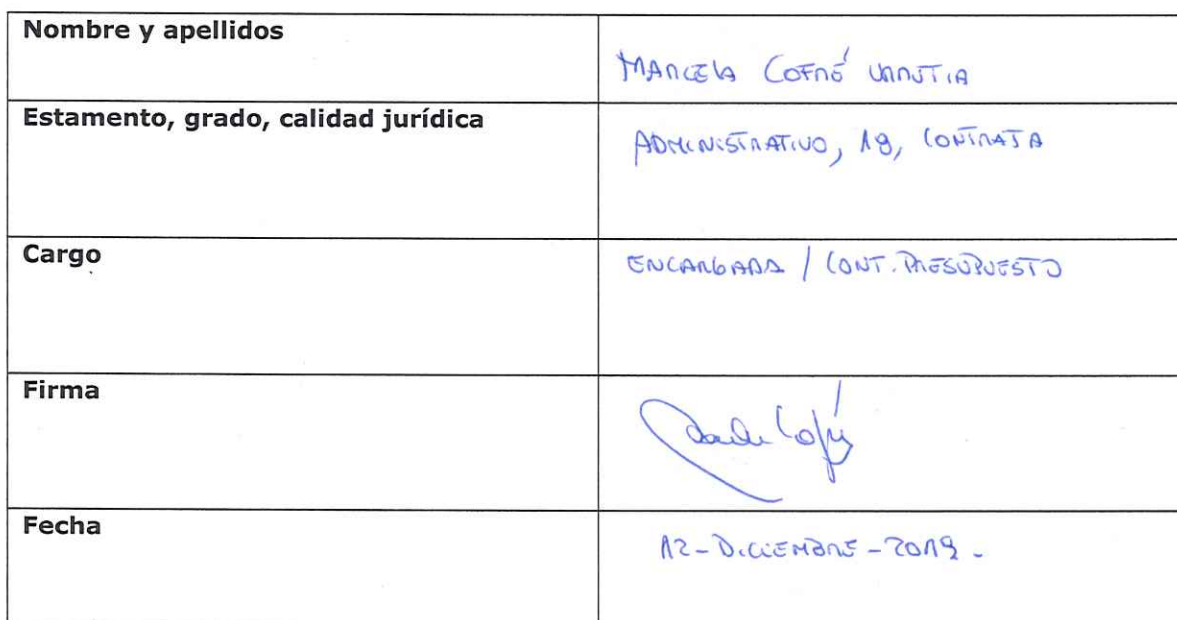 Nombre y apellidos
MARCELA COFRÉ URRUTIA
Estamento, grado, calidad jurídica
ADMINISTRATIVO, 19, CONTRATA
Cargo
ENCARGADA / CONT. PRESUPUESTO
Firma
Fecha
12-DICIEMBRE-2019-